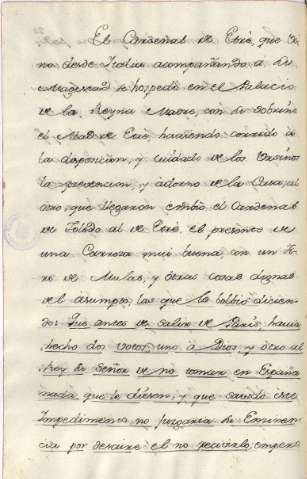 El Cardenal de Etré, que vi-
no desde Italia acompañando a Su
Magestad se hospedó en el Palacio
de la Reyna Madre, con su sobrino
el Abad de Etré, haviendo corrido a
la disposicion, y cuidado de los
la prevencion, y adorno de la Casa, al
que llegaron embió el Cardenal
de Toledo al de Etré, el presente de
una Carroza mui buena, con un ti-
ro de Mulas, y otras cosas dignas
del asumpto, las que le bolbió dicien-
do: Que antes de salir de Paris, havia
hecho dos votos, uno a Dios, y otro al
Rey su Señor de no tomar en España
nada que le diesen, y que siendo este
Impedimento no juzgaria su Eminen-
cia por desaire el no recivirlo, empero